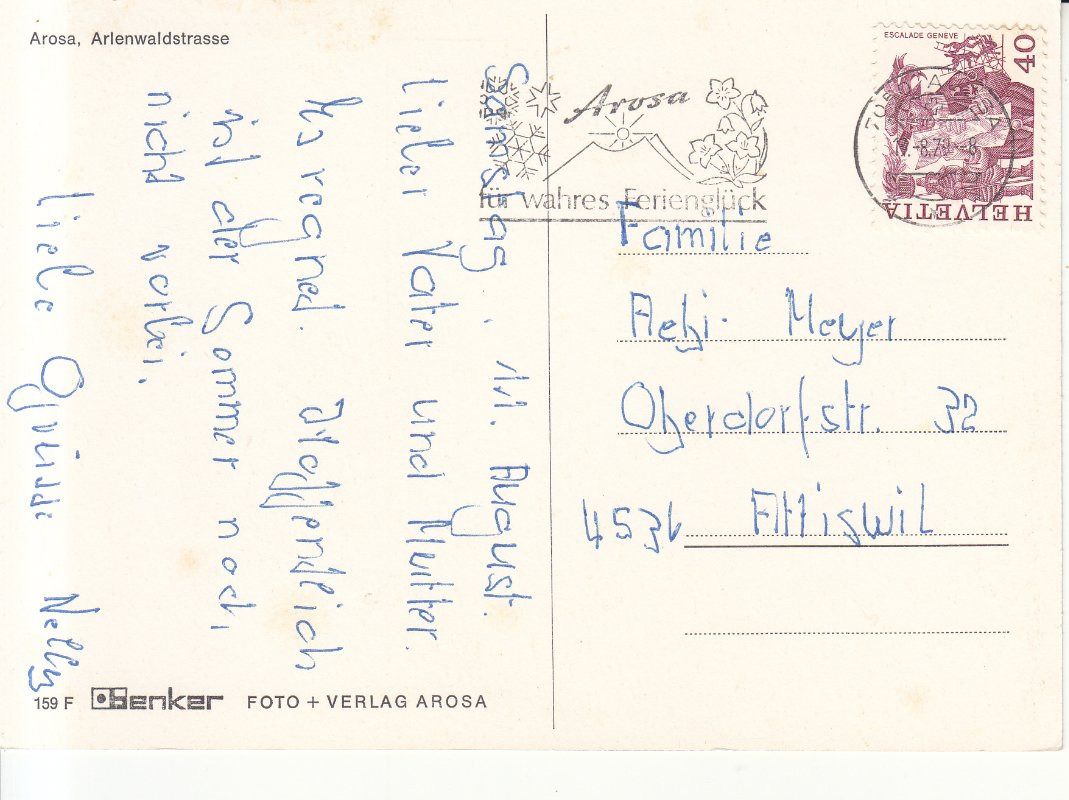 Arosa, Arlenwaldstrasse
Samstag, 11. August.
Lieber Vater und Mutter.
Es regnet. Hoffentlich
ist der Sommer noch
nicht vorbei.
Liebe Grüsse Nelly
159 F Benker FOTO + VERLAG AROSA
Arosa
für wahres Ferienglück
ESCALADE GENEVE
40
HELVETIA
AROSA
Familie
Aebi-Meyer
Oberdorfstr. 32
4536 Attiswil